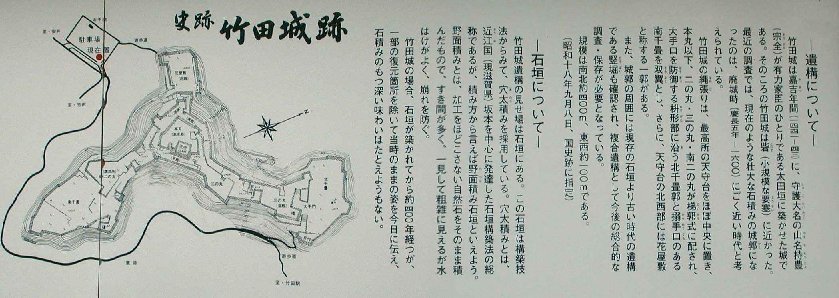 史跡 竹田城跡
遺構について
竹田城は嘉吉年間(一四四一〜四三)に、守護大名の山名持豊
(宗全)が有力家臣のひとりである太田垣に築かせた城で
ある。そのころの竹田城は砦(小規模な要塞)に近かった。
最近の調査では、現在のような壮大な石積みの城郭にな
ったのは、廃城時(慶長五年 一六〇〇)にごく近い時代と考
えられている。
竹田城の縄張りは、最高所の天守台をほぼ中央に置き、
本丸以下、二の丸・三の丸・南二の丸が梯郭式に配され、
大手口を防御する枡形部に沿う北千畳郭と搦手口のある
南千畳を双翼とし、さらに、天守台の北西部には花屋敷
と称する一郭がある。
また、城郭の周囲には現存の石垣より古い時代の遺構
である竪堀も確認され、複合遺構として今後の総合的な
調査・保存が必要となっている。
規模は南北約四〇〇m、東西約一〇〇mである。
(昭和十八年九月八日、国史跡に指定)
石垣について
竹田城遺構の見せ場は石垣にある。この石垣は構築技
法からみて、穴太積みを採用している。穴太積みとは、
近江国(現滋賀県)坂本を中心に発達した石垣構築法の総
称であるが、積み方から言えば野面積み石垣といえよう。
野面積みとは、加工をほどこさない自然石をそのまま積
んだもので、すき間が多く、一見して粗雑に見えるが水
はけがよく、崩れを防ぐ。
竹田城の場合、石垣が築かれてから約四〇〇年経つが、
一部の復元箇所を除いて当時のままの姿を今日に伝え、
石積みのもつ深い味わいはたとえようもない。
駐車場
現在地